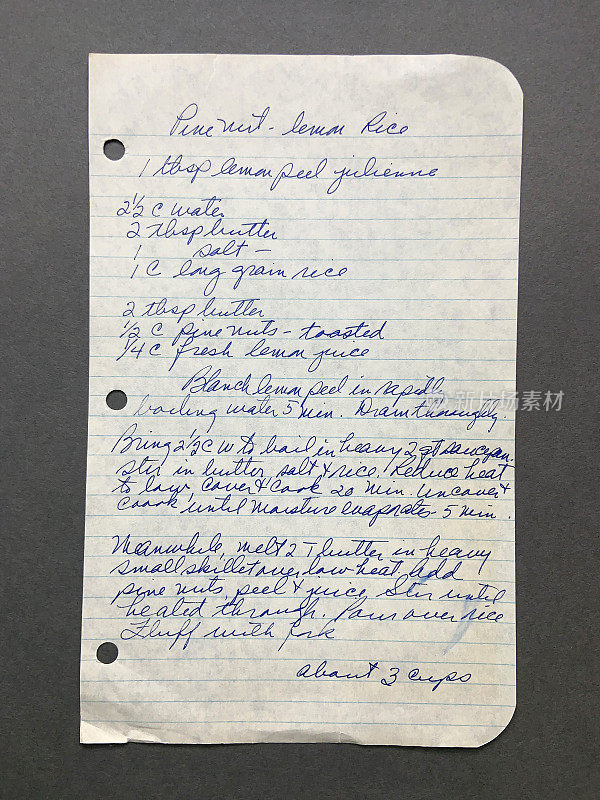 Pine nut - lemon Rice
1 tbsp lemon peel julienne
2 1/2 c water
2 tbsp butter
1 salt -
1 C long grain rice
2 tbsp butter
1/2 c pine nuts - toasted
1/4 c fresh lemon juice
Blanch lemon peel in rapidly
boiling water 5 min. Drain thoroughly
Bring 2 1/2 C W to boil in heavy 2 qt saucepan.
Stir in butter, salt & rice. Reduce heat
to low, cover & cook 20 min. Uncover &
coook until moisture evaporates - 5 min.
Meanwhile, melt 2 T butter in heavy
small skillet over low heat. Add
pine nuts, peel & juice. Stir until
heated through. Pour over rice
Fluff with fork
about 3 cups